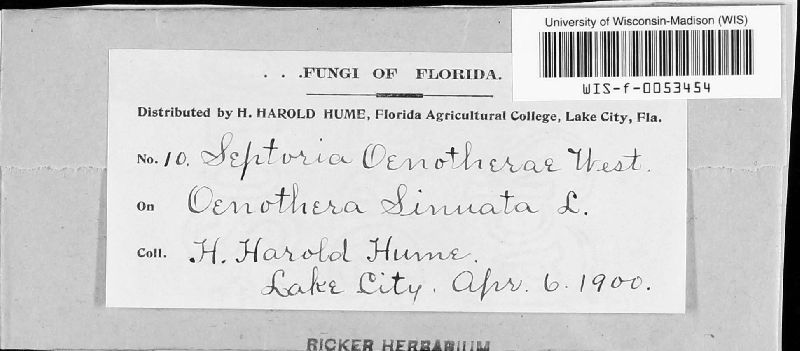 University of Wisconsin-Madison (WIS)
WIS-f-0053454
. . .FUNGI OF FLORIDA.
Distributed by H. HAROLD HUME, Florida Agricultural College, Lake City, Fla.
No. 10. Septoria Oenotherae West.
On Oenothera Sinuata L.
Coll. H. Harold Hume.
Lake City. Apr. 6. 1900.
RICKER HERBARIUM